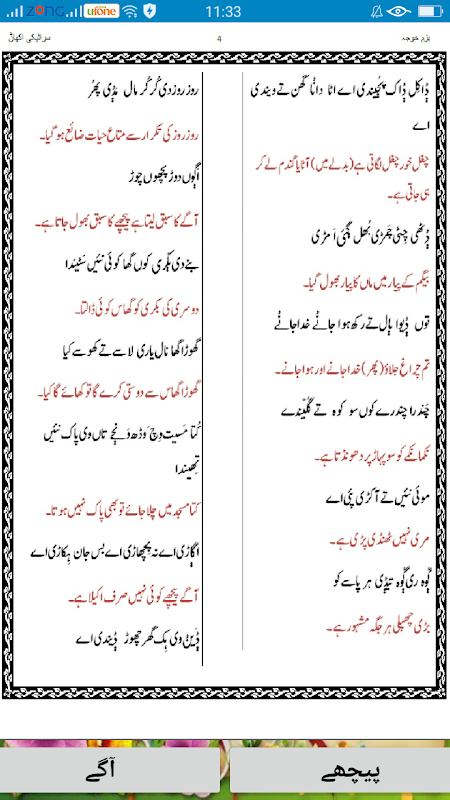 zong ufone 11:33
بزم خوجہ 4 سرائیکی اکھاݨ
ڈٖاکِل ڈٖاک پُڄیندی اے اٹا داݨا گھن تے ویندی
اے
چغل خور چغل لگاتی ہے (بدلے میں) آٹا یا گندم لے کر
ہی جاتی ہے۔
ڈٖٹھی چِٹی چمڑی بُھل ڳئی اَمڑی
بیگم کے پیار میں ماں کا پیار بھول گیا۔
توں ڈٖیوا ٻال تے رکھ ہوا جاݨے خدا جاݨے
تم چراغ جلاؤ (پھر) خدا جانے اور ہوا جانے۔
چندرا چندرے کوں سو کوہ تے ڳلیندے
نکما نکمے کو سو پہاڑ پر دھونڈتا ہے۔
موئی نئیں تے آکڑی پئی اے
مری نہیں ٹھنڈی پڑی ہے۔
ڳوہ ری ڳوہ تیڈٖی ہر پاسے کو
بڑی چھپکلی ہر جگہ مشہور ہے۔
روز روز دی کُڑکُڑ مال مڈٖی پھُر
روز روز کی تکرار سے متاع حیات ضائع ہو گیا۔
اڳوں دوڑ پچھوں چوڑ
آگے کا سبق لیتا ہے پیچھے کا سبق بھول جاتا ہے۔
بنے دی ٻکری کوں گھا کوئی نئیں سٹیندا
دوسری کی بکری کو گھاس کوئی ڈالتا۔
گھوڑا گھا نال یاری لاسے تے کھوسے کیا
گھوڑا گھاس سے دوستی کرے گا تو کھائے گا کیا۔
کُتا مسیت وِچ وڑھ ونڄے تاں وی پاک نئیں
تھیندا
کتا مسجد میں چلا جائے تو بھی پاک نہیں ہوتا۔
اڳاڑی اے نہ پچھاڑی اے بس جان ٻکاڑی اے
آگے پیچھے کوئی نہیں صرف اکیلا ہے۔
ڈٖیݨ وی ہِک گھر چھوڑ ڈٖیندی اے
آگے پیچھے